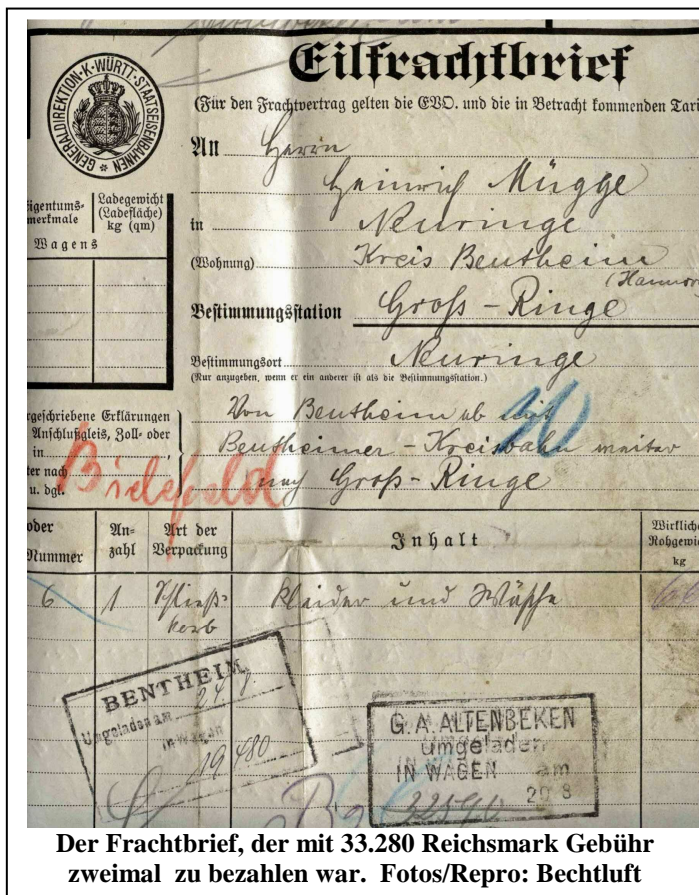 Eilfrachtbrief
GENERALDIREKTION·K·WÜRTT·STAATSEISENBAHNEN
(Für den Frachtvertrag gelten die EVO. und die in Betracht kommenden Tari
An Herrn
Heinrich Mügge
in Neuringe
(Wohnung) Kreis Bentheim
(Hannov
Bestimmungsstation Groß-Ringe
Bestimmungsort Neuringe
(Nur anzugeben, wenn er ein anderer ist als die Bestimmungsstation.)
Eigentums-
merkmale
Ladegewicht
(Ladefläche)
kg (qm)
Wagens
rgeschriebene Erklärungen
Anschlußgleis, Zoll- oder
in
ter nach
u. dgl.
Bielefeld
Von Bentheim ab mit
Bentheimer-Kreisbahn weiter
nach Groß-Ringe
oder
Nummer
An-
zahl
Art der
Verpackung
Inhalt
Wirkliche
Rohgewic
kg
6 1 Schließ-
korb
Kleider und Wäsche
BENTHEIM
Umgeladen am 24
in Wagen
19480
G. A. ALTENBEKEN
umgeladen
IN WAGEN am
22590 20 8
Der Frachtbrief, der mit 33.280 Reichsmark Gebühr
zweimal zu bezahlen war. Fotos/Repro: Bechtluft